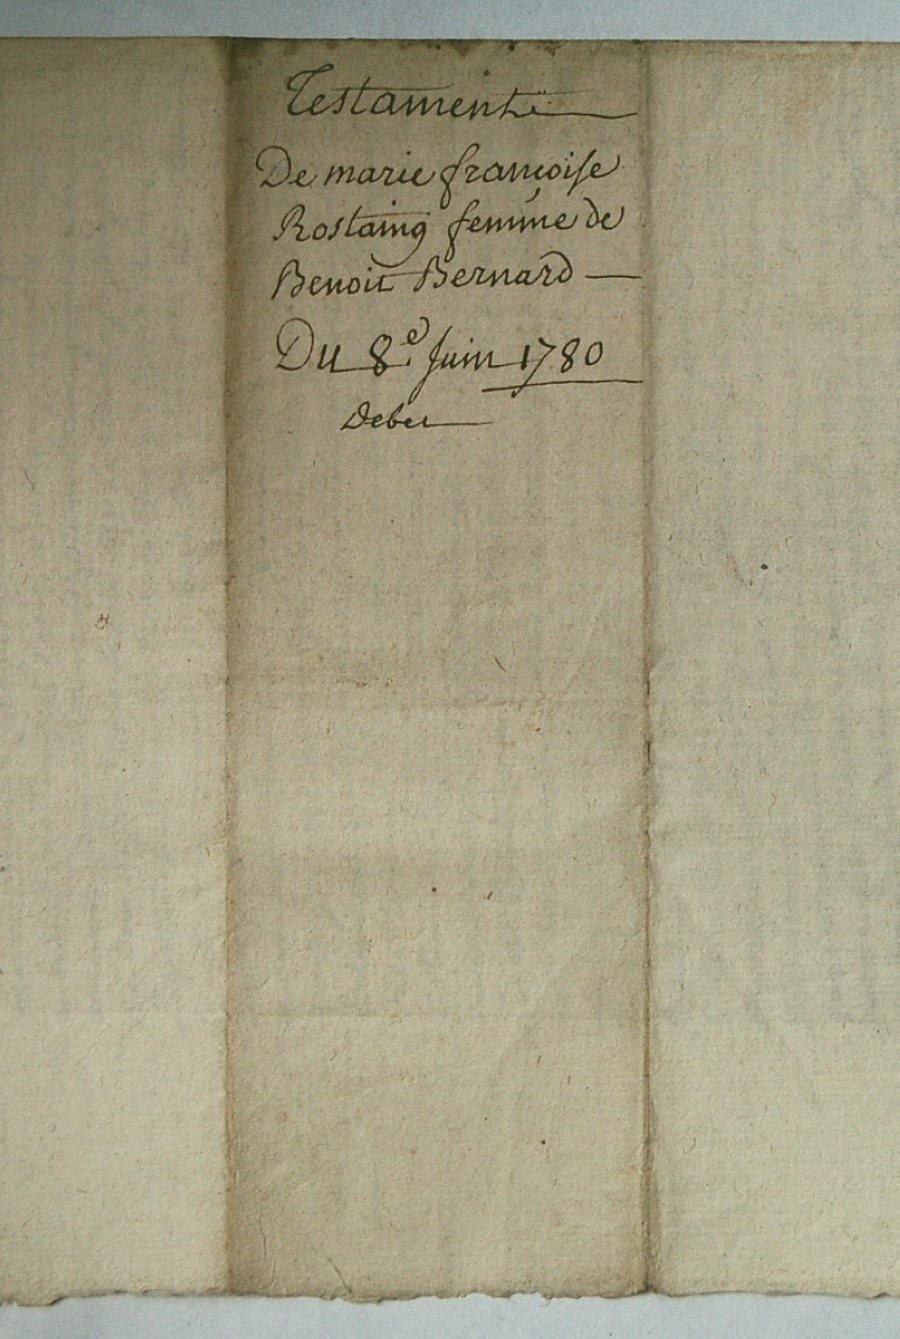 Testament
De marie françoise
Rostaing femme de
Benoit Bernard
Du 8e. Juin 1780